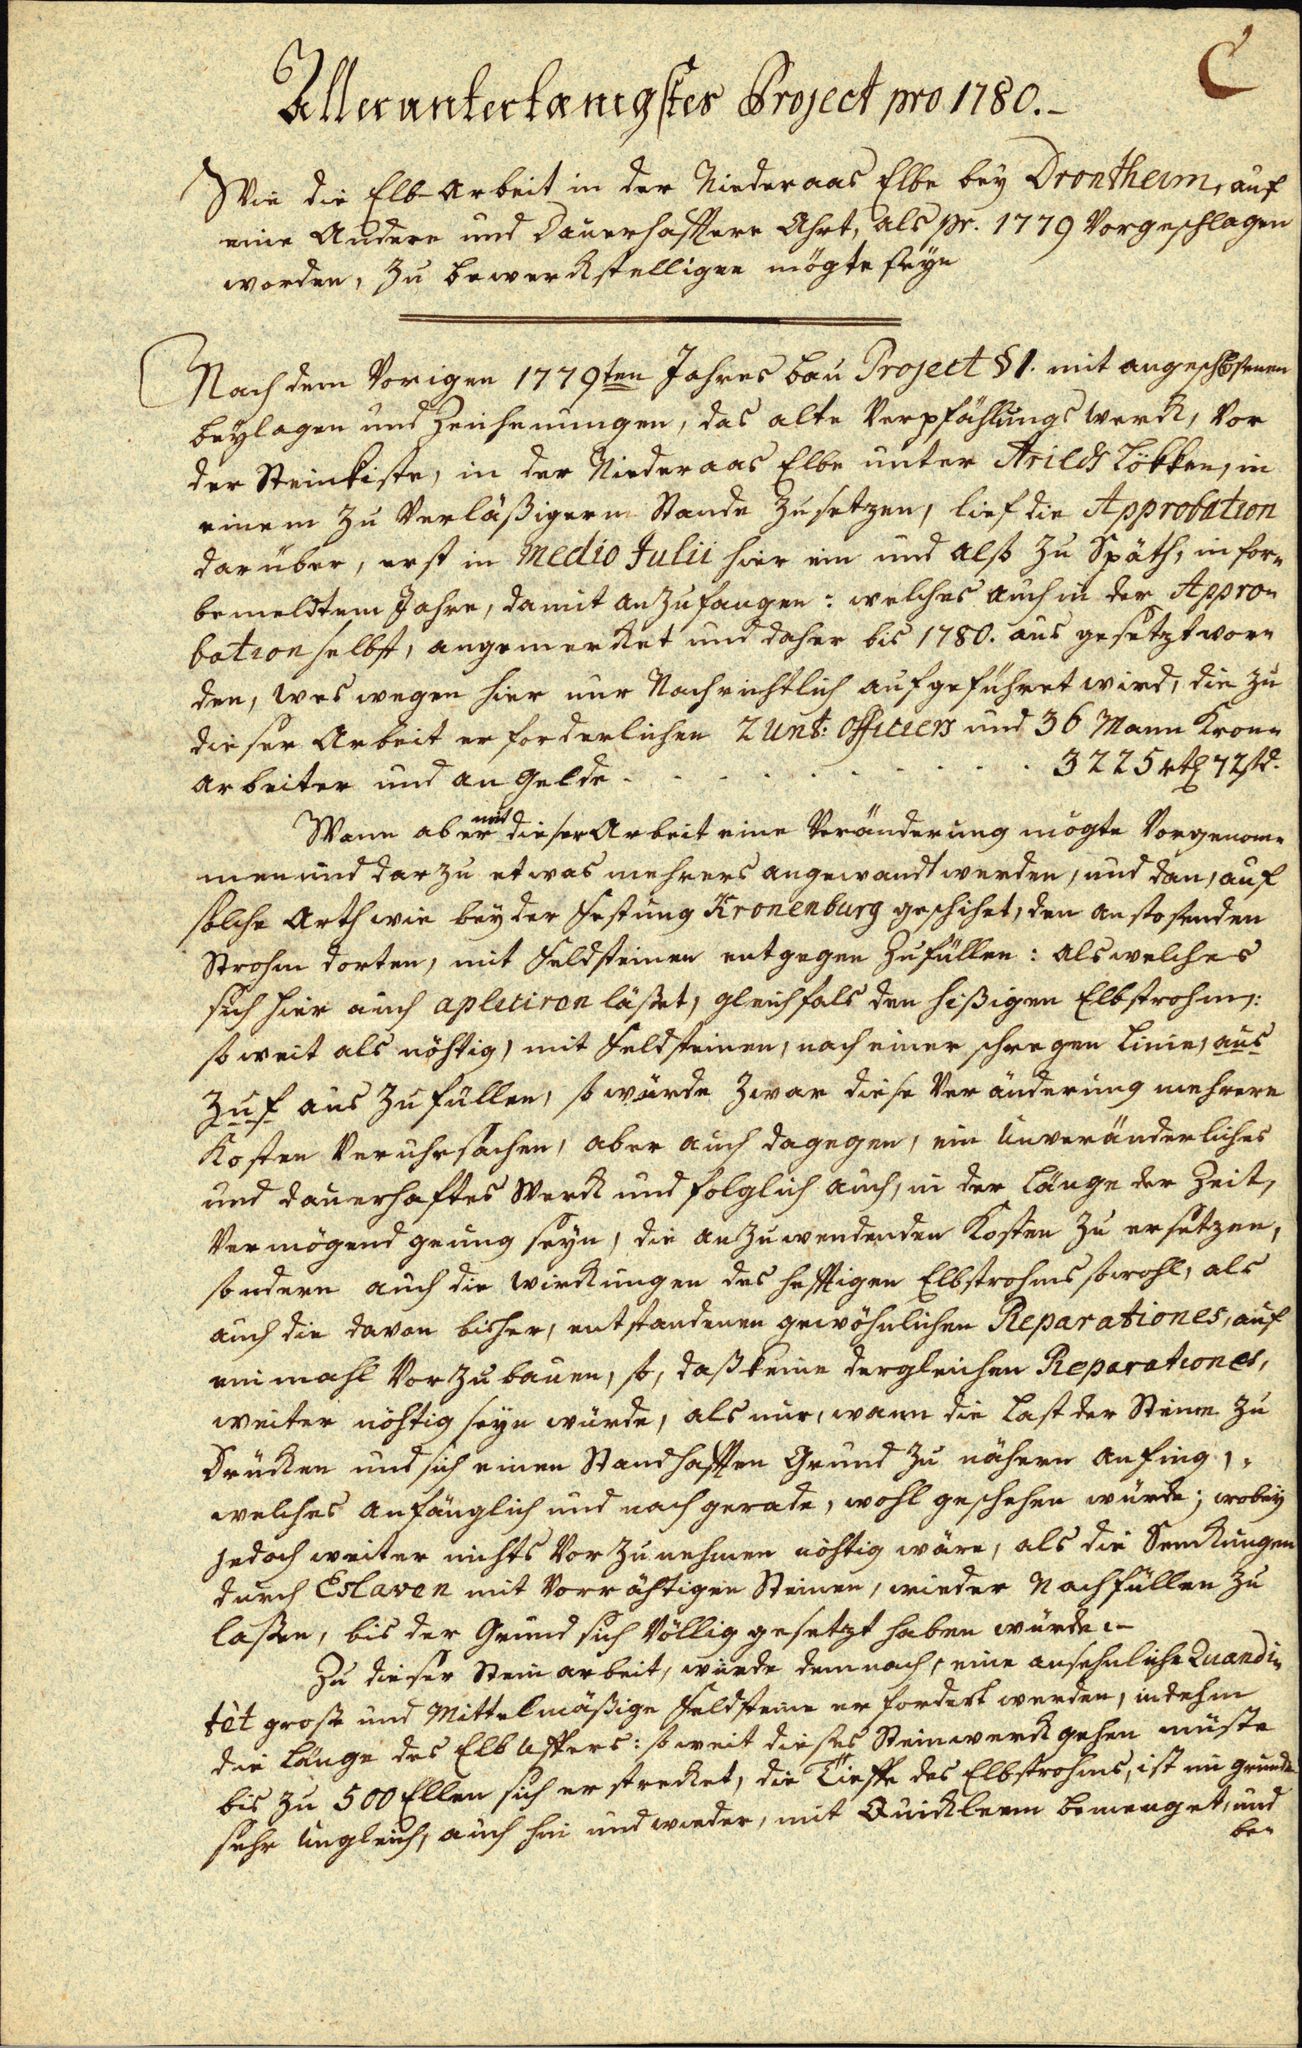 C
Allerunterthænigstes Project pro 1780.–
Wie die Elb-Arbeit in der Niederaas Elbe bey Drontheim, auf
eine Andere und Dauerhafftere Ahrt, als pr. 1779 Vorgeschlagen
worden, zu bewerkstelligen mögte seyn
Nach dem Vorigen 1779ten Jahres bau Project § 1. mit angeschloßenen
beylagen und Zeichenungen, das alte Verpfählungs Werck, Vor
der Steinkiste, in der Niederaas Elbe unter Arilds Lökken, in
einem zu Verläßigerm Stande Zusetzen, lief die Approbation
darüber, erst in Medio Julii hier ein und alß zu Späth, in for-
bemeldtem Jahre, damit anzufangen: welches auch in der Appro-
bation selbst, angemerket und daher bis 1780. aus gesetzt wor-
den, wes wegen hier nur Nachrichtlich aufgeführet wird, die zu
dieser Arbeit erforderlichen 2 Unt: Officiers und 36 Mann Kron-
Arbeiter und an Gelde . . . . . . . . . 3225 rthl 72 sld.
Wann aber mit dieser Arbeit eine Veränderung mögte Vorgenom-
men und darzu etwas mehrers angewandt werden, und dan, auf
solche Arth wie bey der Festung Kronenburg geschihet, den anstosenden
Strohm dorten, mit Feldsteinen entgegen Zufüllen: als welches
sich hier auch apliciren läßet, gleichfals den hißigen Elbstrohm,:
so weit als nöhtig, mit Feldsteinen, nach einer schregen Linie, aus
Zuf aus Zufüllen, so würde zwar diese Veränderung mehrere
Kosten Veruhrsachen, aber auch dagegen, ein Unveränderliches
und dauerhaftes Werck und folglich auch, in der Länge der Zeit,
Vermögend genug seyn, die anzuwendenden Kosten zu ersetzen,
sondern auch die wirckungen des hefftigen Elbstrohms sowohl, als
auch die davon bisher, entstandenen gewöhnlichen Reparationes, auf
einmahl Vorzubauen, so, daß keine dergleichen Reparationes,
weiter nöhtig seyn würde, als nur, wann die Last der Steine zu
Drücken und sich einen Standhafften Grund zu nähern anfing,,
welches anfänglich und nach gerade, wohl geschehen würde; wobey
jedoch weiter nichts Vorzunehmen nöhtig wäre, als die Senckungen
durch Eslaven mit Vorrähtigen Steinen, wieder Nachfüllen zu
laßen, bis der Grund sich Völlig gesetzt haben würde.–
Zu dieser Stein arbeit, würde demnach, eine ansehnliche Quandi-
tèt große und Mittelmäßige Feldsteine erfordert werden, indehm
die Länge des Elb Uffers: so weit dieses Steinwerck gehen müste
bis zu 500 Ellen sich erstrecket, die Tieffe des Elbstrohms, ist im grunde
sehr Ungleich, auch hin und wieder, mit Quickleem bemenget, und
be-